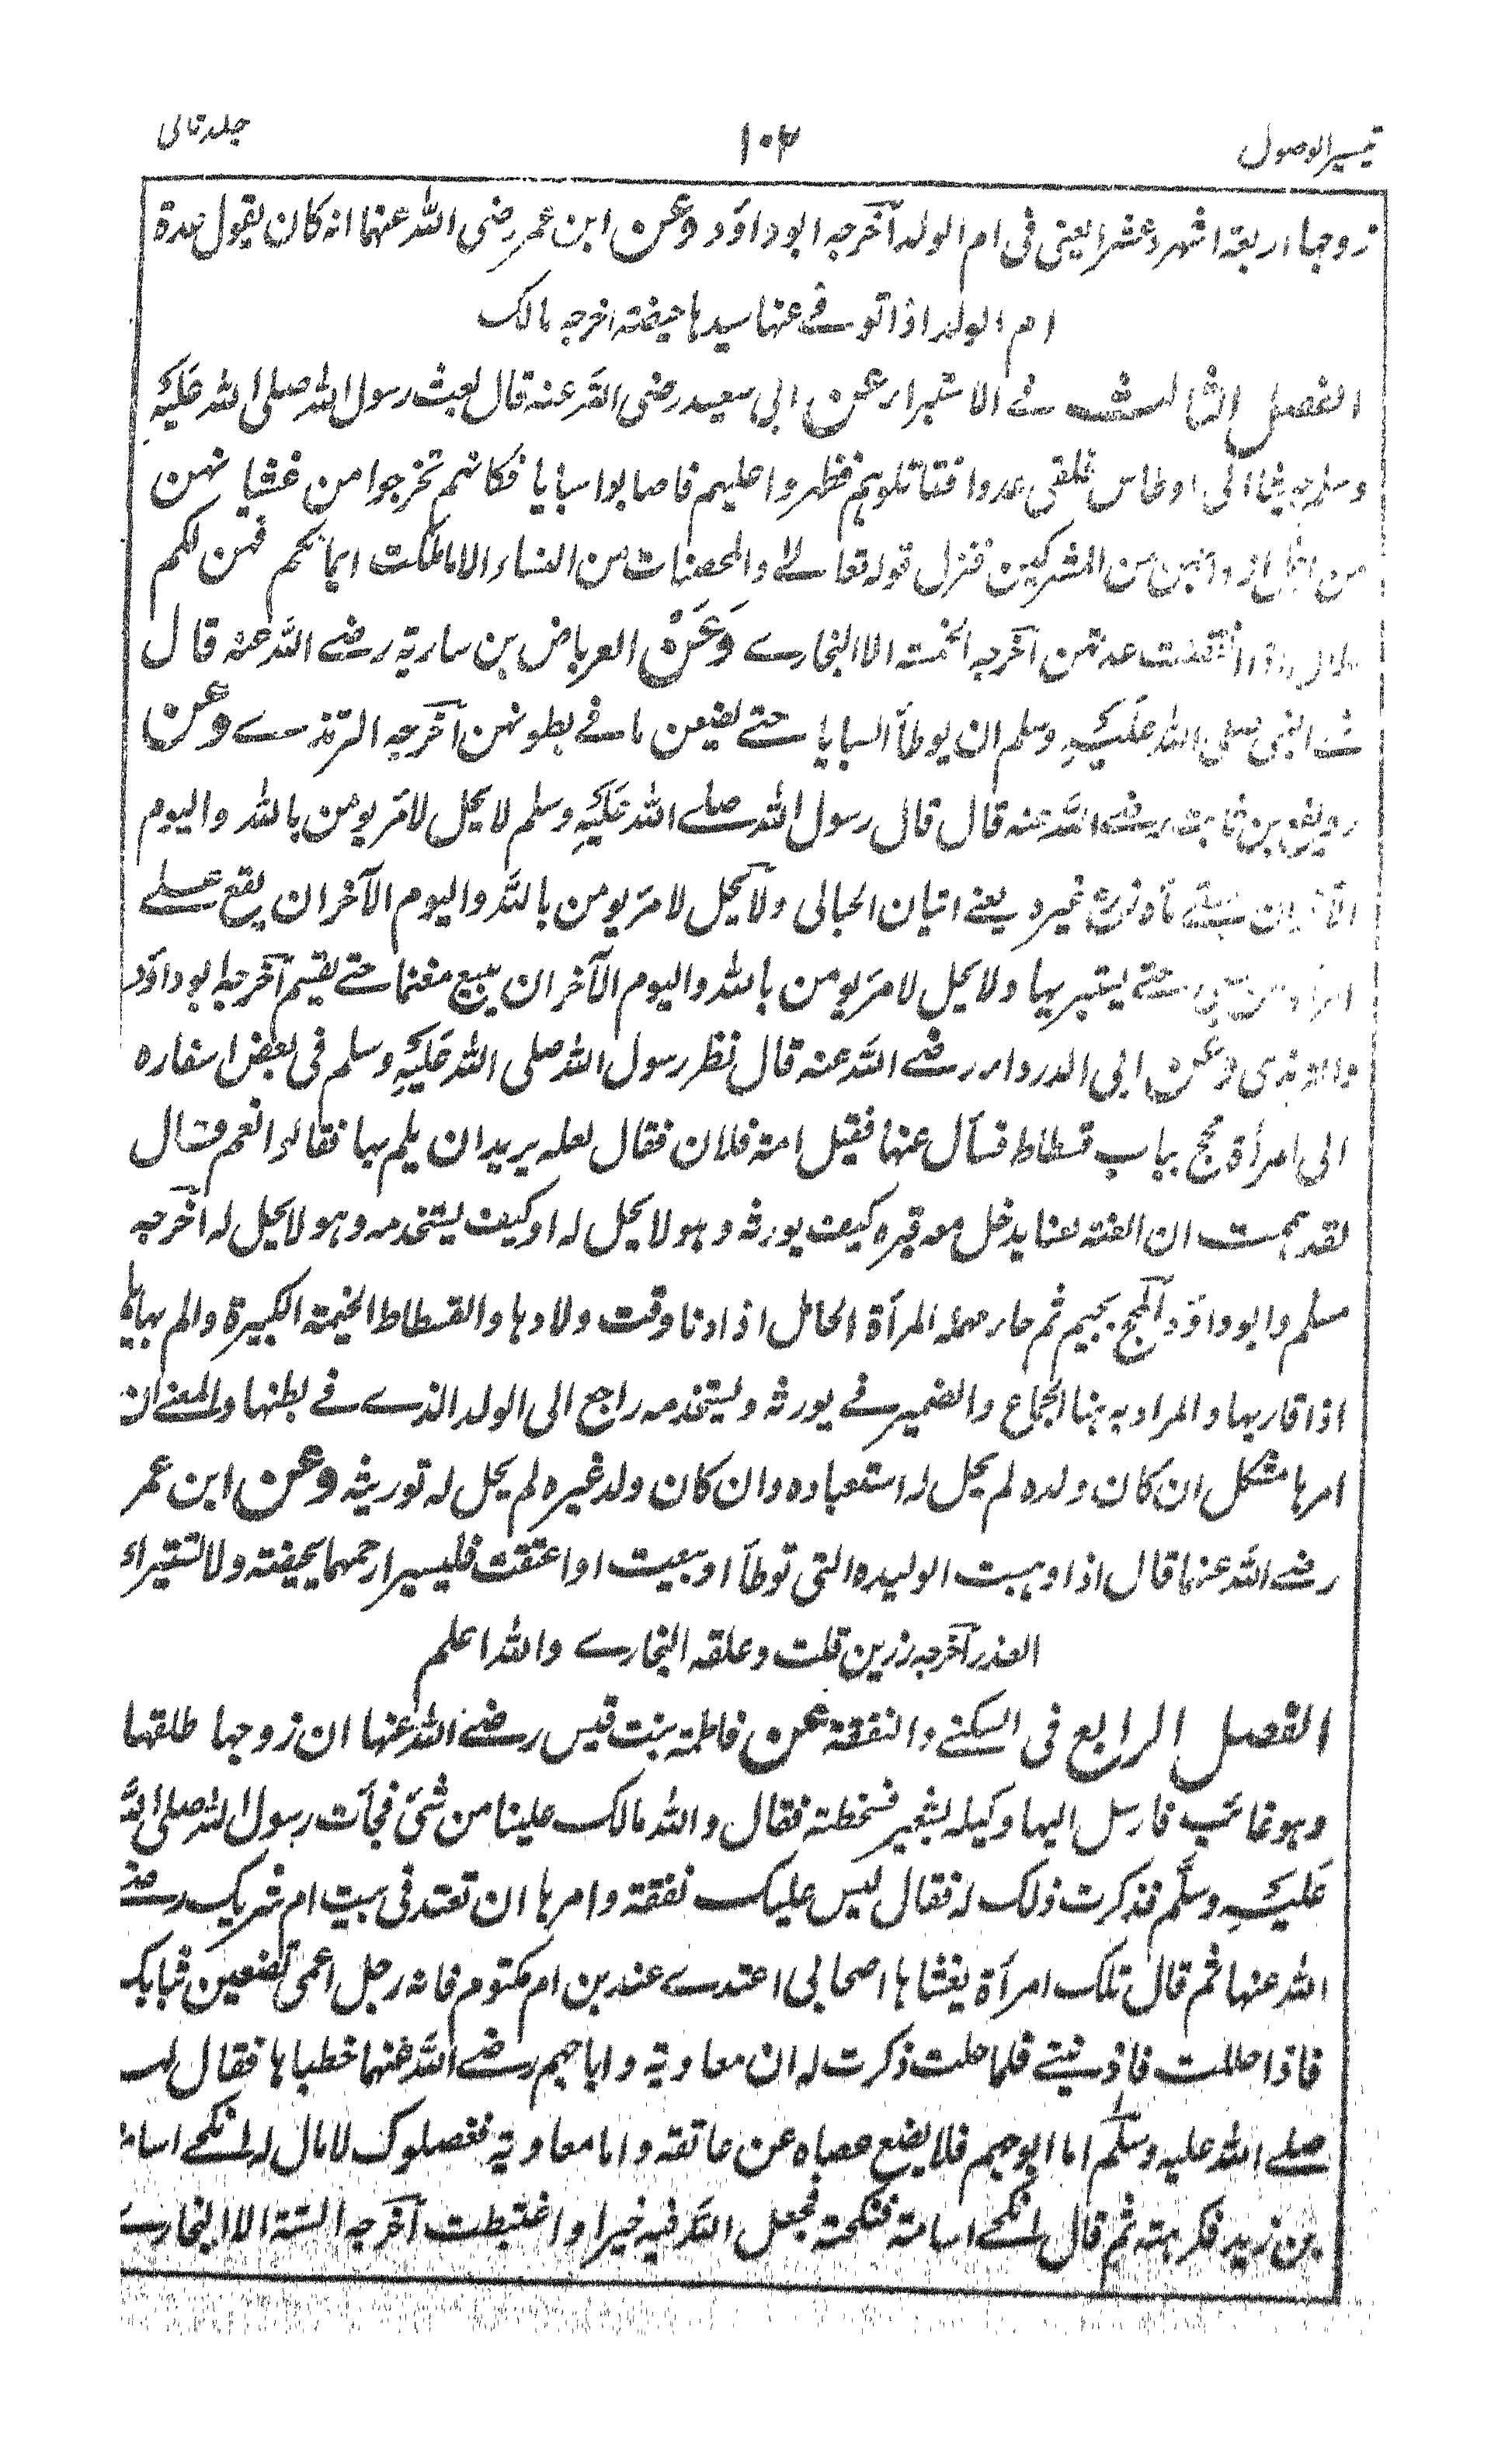 تیسیر الوصول
۱۰۲
جلد ثانی
زوجها اربعة اشهر وعشرا یعنی فی ام الولد اخرجه ابو داؤد وعن ابن عمر رضی الله عنهما انه کان یقول عدة
ام الولد اذا توفی عنها سیدها حیضة اخرجه مالک
الفصل الثالث فی الاستبراء عن ابی سعید رضی الله عنه قال بعث رسول الله صلی الله علیه
وسلم جیشا الی اوطاس فلقی عدوا فقاتلوهم فظهروا علیهم فاصابوا سبایا فکانهم تحرجوا من غشیانهن
من اجل ازواجهن من المشرکین فنزل قوله تعالی والمحصنات من النساء الا ما ملکت ایمانکم فهن لکم
حلال اذا انقضت عدتهن اخرجه الخمسة الا البخاری وعن العرباض بن ساریة رضی الله عنه قال
النبی صلی الله علیه وسلم ان یوطأ السبایا حتی یضعن ما فی بطونهن اخرجه الترمذی وعن
رویفع بن ثابت رضی الله عنه قال قال رسول الله صلی الله علیه وسلم لا یحل لامرء یومن بالله والیوم
الآخر ان یسقی ماءه زرع غیره یعنی اتیان الحبالی ولا یحل لامرء یومن بالله والیوم الآخر ان یقع علی
امرأة من سبی حتی یستبریها ولا یحل لامرء یومن بالله والیوم الآخر ان یبیع مغنما حتی یقسم اخرجه ابو داؤد
والترمذی وعن ابی الدرداء رضی الله عنه قال نظر رسول الله صلی الله علیه وسلم فی بعض اسفاره
الی امرأة مجح بباب فسطاط فسأل عنها فقیل امة فلان فقال لعله یرید ان یلم بها فقالوا نعم فقال
لقد هممت ان العنه لعنا یدخل معه قبره کیف یورثه وهو لا یحل له او کیف یستخدمه وهو لا یحل له اخرجه
مسلم وابو داؤد المجح بجیم ثم حاء مهملة المرأة الحامل اذا دنا وقت ولادها والفسطاط الخیمة الکبیرة والم بها
اذا قاربها والمراد به هنا الجماع والضمیر فی یورثه ویستخدمه راجع الی الولد الذی فی بطنها والمعنی ان
امرها مشکل ان کان ولده لم یحل له استعباده وان کان ولد غیره لم یحل له توریثه وعن ابن عمر
رضی الله عنهما قال اذا وهبت الولیده التی توطأ او بیعت او اعتقت فلیستبرأ رحمها بحیضة ولا تستبرأ
العذراء اخرجه رزین قلت وعلقه البخاری والله اعلم
الفصل الرابع فی السکنی والنفقة عن فاطمة بنت قیس رضی الله عنها ان زوجها طلقها
وهو غائب فارسل الیها وکیله بشعیر فسخطته فقال والله مالک علینا من شئ فجأت رسول الله صلی الله
علیه وسلم فذکرت ذلک له فقال لیس علیک نفقة وامرها ان تعتد فی بیت ام شریک رضی
الله عنها ثم قال تلک امرأة یغشاها اصحابی اعتدی عند بن ام مکتوم فانه رجل اعمی تضعین ثیابک
فاذا حللت فاذنینی فلما حلت ذکرت له ان معاویة وابا جهم رضی الله عنهما خطباها فقال له
صلی الله علیه وسلم اما ابو جهم فلا یضع عصاه عن عاتقه واما معاویة فصعلوک لا مال له انکحی اسامة
بن زید فکرهته ثم قال انکحی اسامة فنکحته فجعل الله فیه خیرا واغتبطت اخرجه الستة الا البخاری